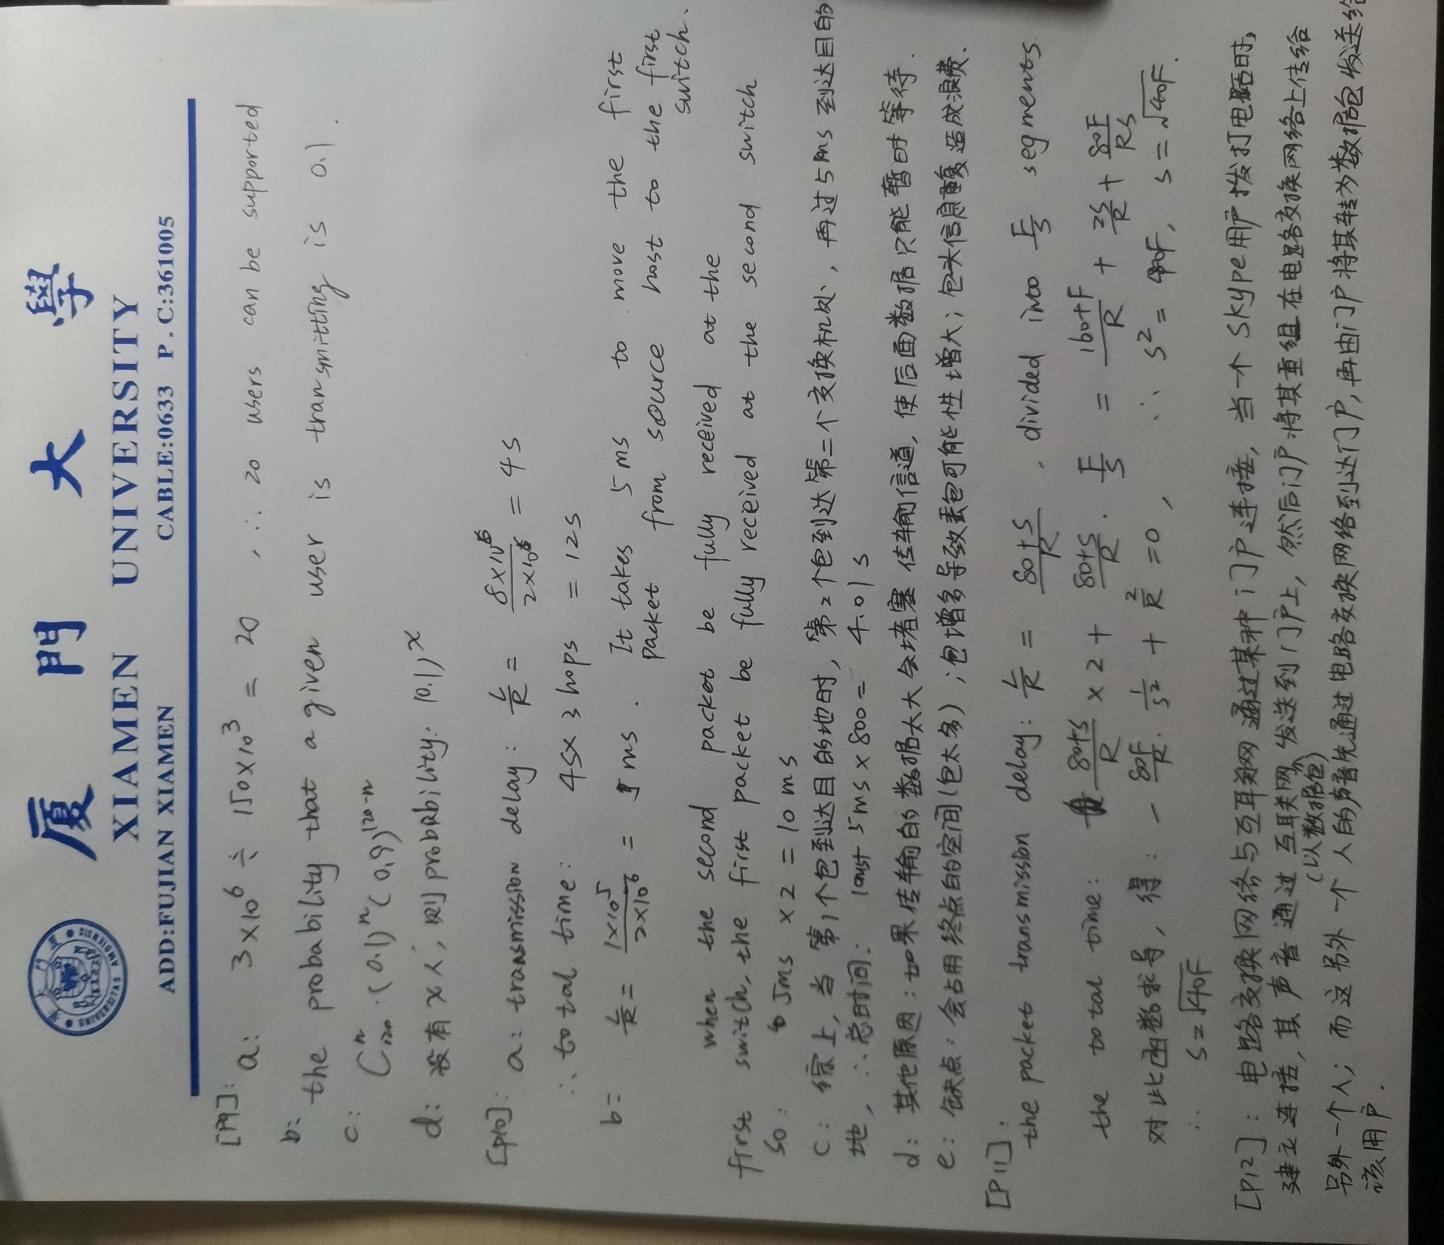 廈門大學
XIAMEN UNIVERSITY
ADD:FUJIAN XIAMEN CABLE:0633 P.C:361005
[P9]:
a: 3×10⁶ ÷ 150×10³ = 20 , ∴ 20 users can be supported
b: the probability that a given user is transmitting is 0.1.
c: C₁₂₀ⁿ·(0.1)ⁿ(0.9)¹²⁰⁻ⁿ
d: 设有x人, 则probability: (0.1)ˣ
[P10]: a: transmission delay: L/R = 8×10⁶/2×10⁶ = 4s
∴ total time: 4s×3 hops = 12s
b: L/R = 1×10⁵/2×10⁶ = 5ms. It takes 5ms to move the first
packet from source host to the first switch.
when the second packet be fully received at the
first switch, the first packet be fully received at the second switch
so: 5ms ×2 = 10ms
c: 综上, 当第1个包到达目的地时, 第2个包到达第二个交换机处, 再过5ms到达目的
地, ∴总时间: 10ms+5ms×800= 4.01s
d: 其他原因: 如果传输的数据太大会堵塞传输信道, 使后面数据只能暂时等待.
e: 缺点: 会占用终点的空间(包太多); 包增多导致丢包可能性增大; 包头信息重复造成浪费.
[P11]:
the packet transmission delay: L/R = 80+S/R , divided into F/S segments
the total time: 80+S/R ×2 + 80+S/R · F/S = 160+F/R + 2S/R + 80F/RS
对此函数求导, 得: -80F/R · 1/S² + 2/R =0, ∴ S²=40F, S=√40F.
∴ S=√40F
[P12]: 电路交换网络与互联网通过某种门户连接, 当一个Skype用户拨打电话时,
建立连接, 其声音通过互联网(以数据包)发送到门户上, 然后门户将其重组在电路交换网络上传给
另外一个人; 而这另外一个人的声音先通过电路交换网络到达门户, 再由门户将其转为数据包发送给
该用户.